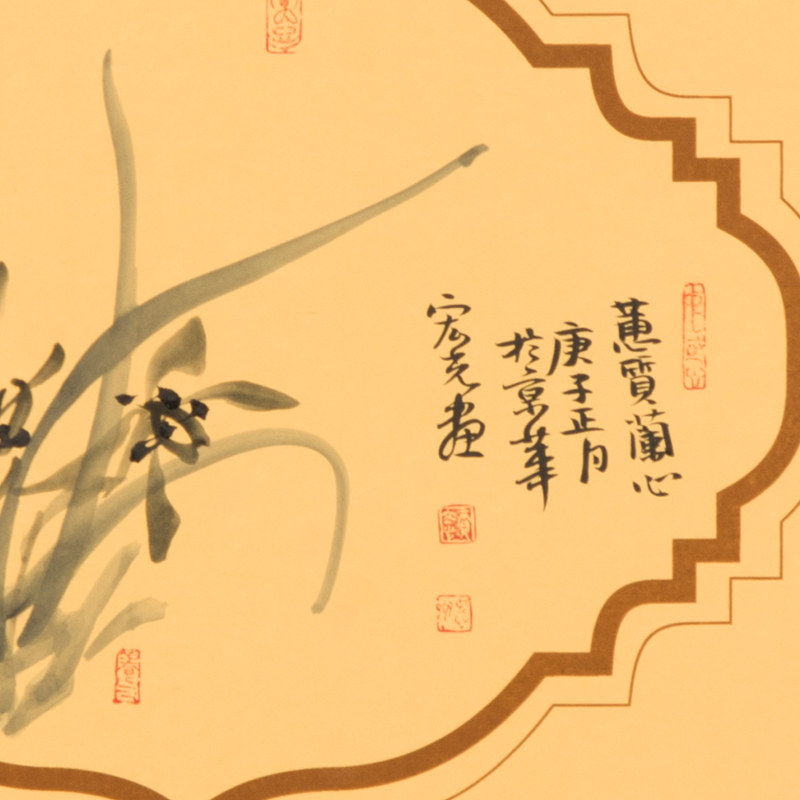 蕙質蘭心
庚子正月
於京華
宏克畫